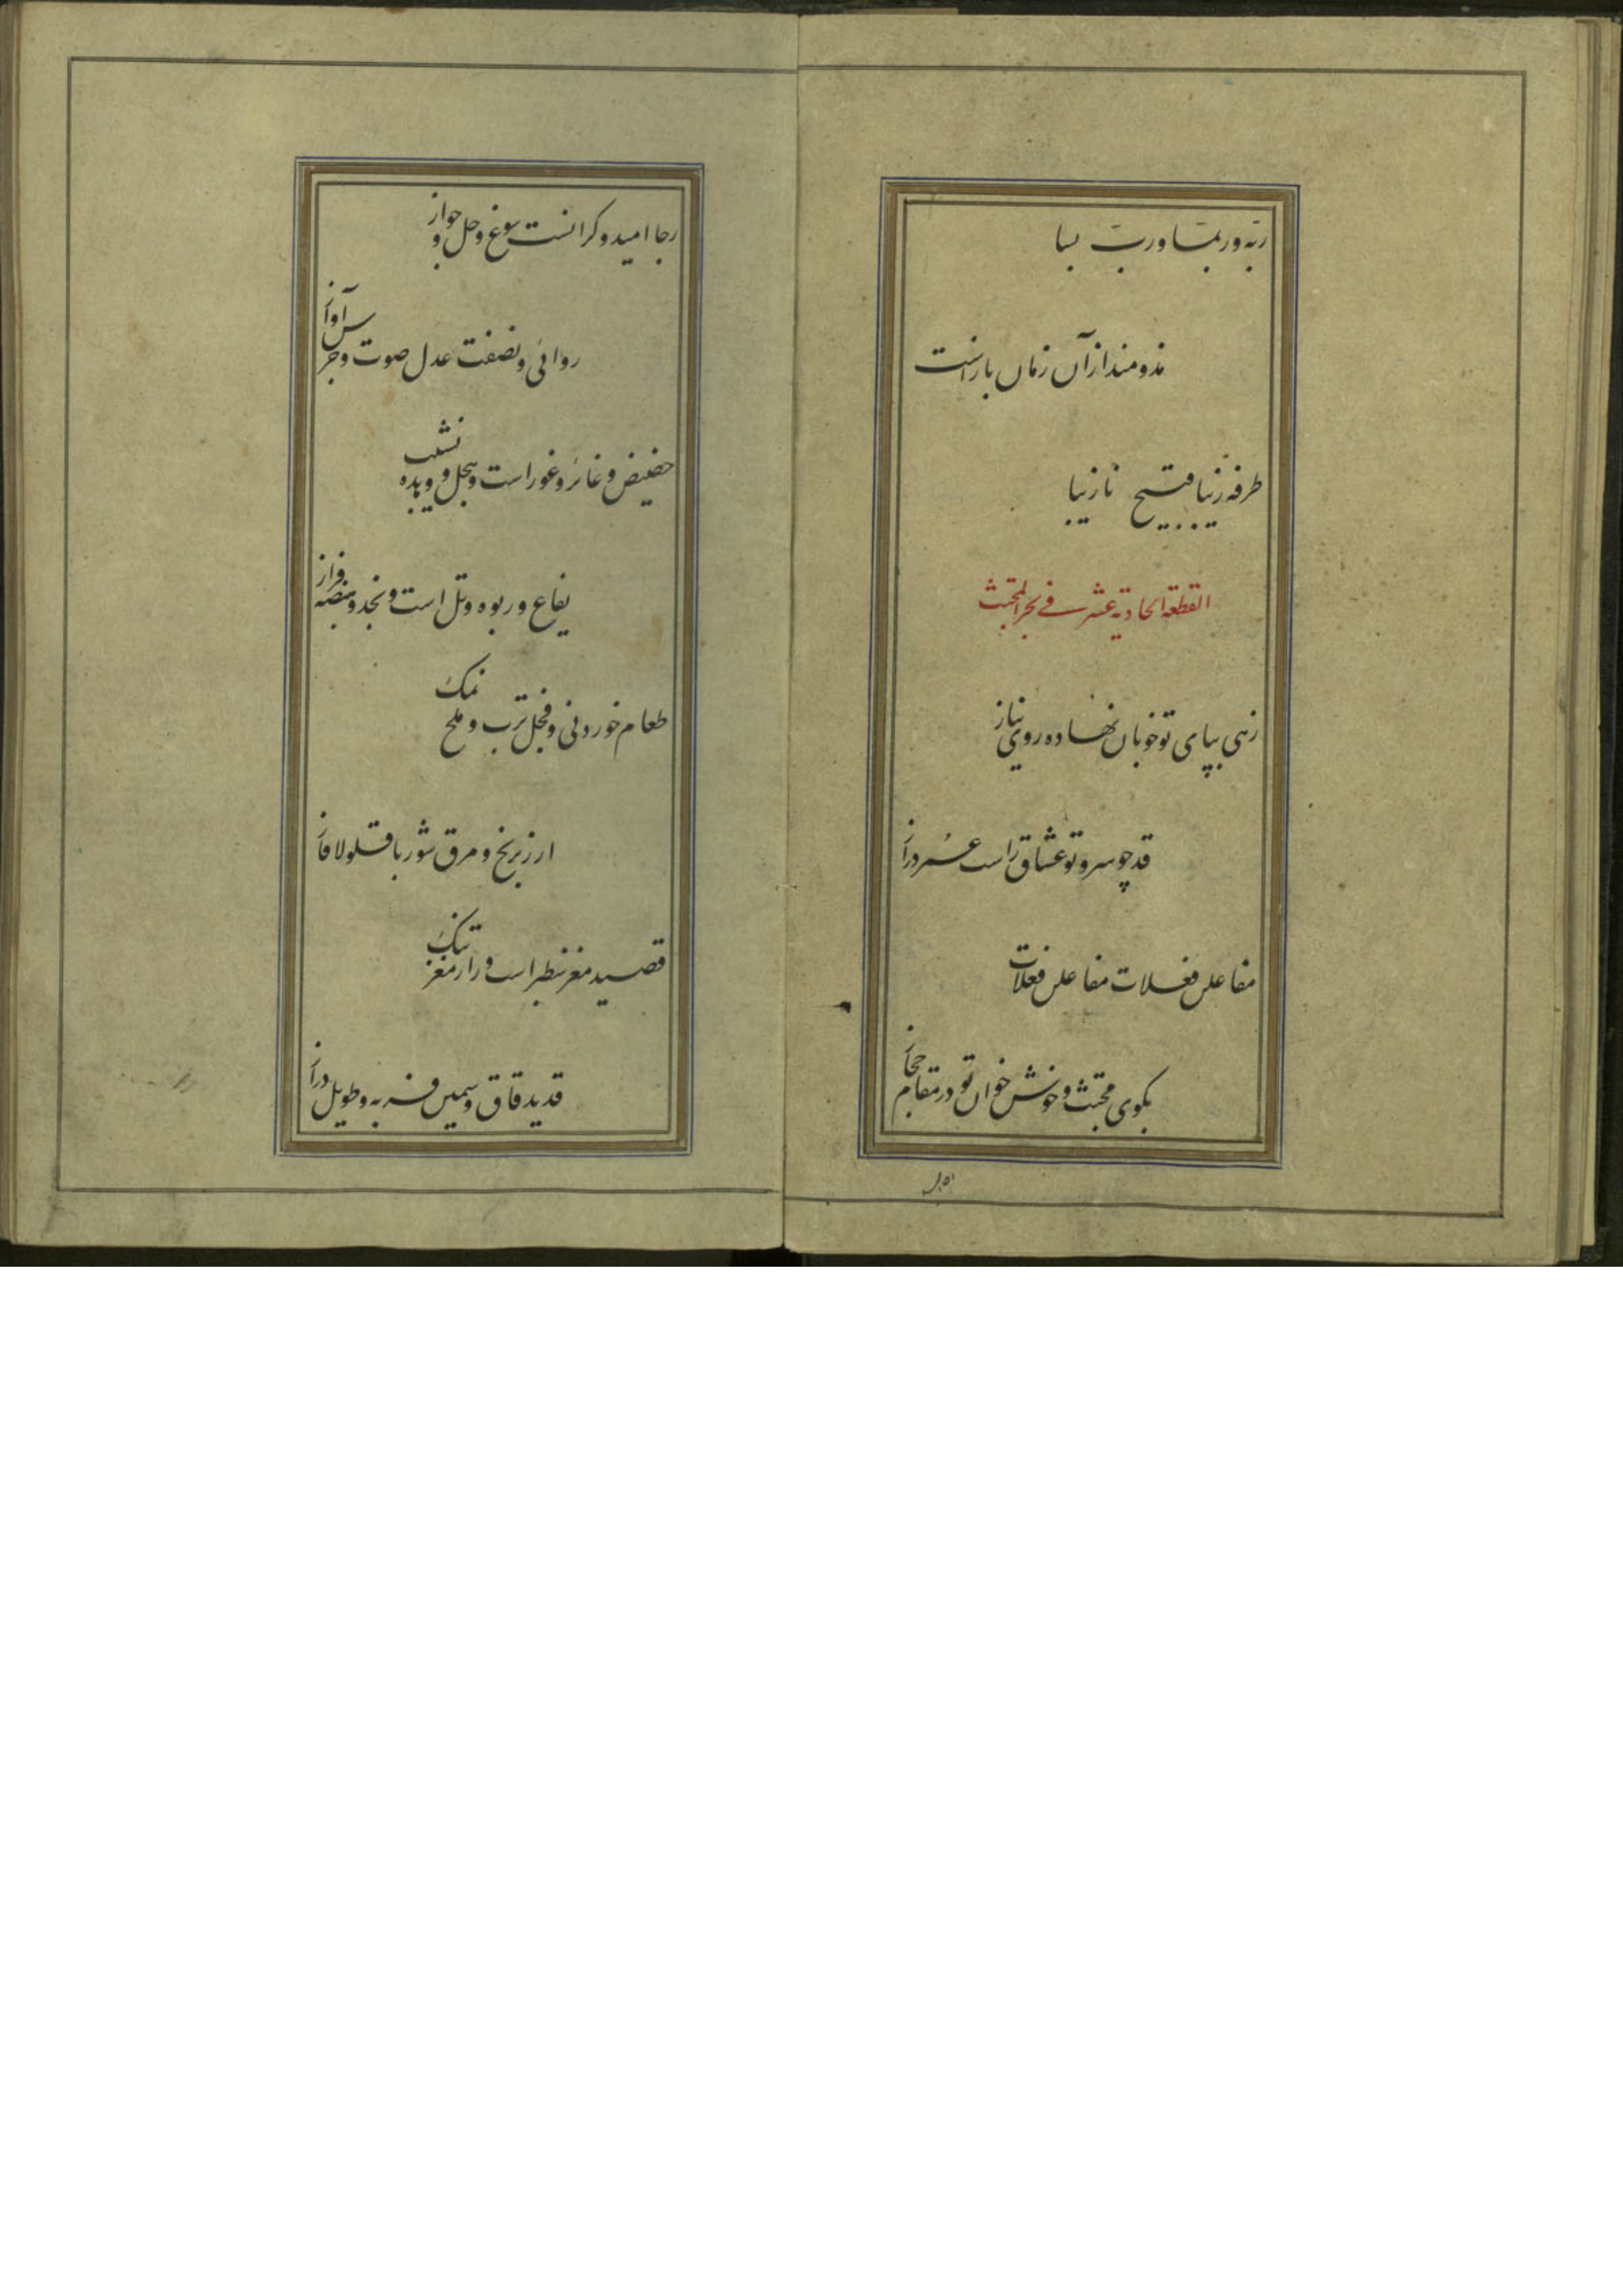 ربه و ربما و رب بسا
مذ و منذ از آن زمان باز است
طرفه زیبا قبیح نازیبا
القطعة الحادیة عشر فی بحر المجتث
زهی بپای تو خوبان نهاده روی نیاز
قد چو سرو تو عشاق راست عمر دراز
مفاعلن فعلات مفاعلن فعلات
بگوی مجتث و خوش خوان تو در مقام حجاز
رجا امید و کرانست سوغ و حل و جواز
روائی و نصفت عدل صوت و جرس آواز
حضیض و غائر و غور است و سجل و وهده نشیب
یفاع و ربوه و تل است و نجد و منصه فراز
طعام خوردنی و فجل ترب و ملح نمک
ارز برنج و مرق شوربا قلولا قاز
قصید مغز سطبر است و رار مغز تنک
قدید قاق و سمین فربه و طویل دراز